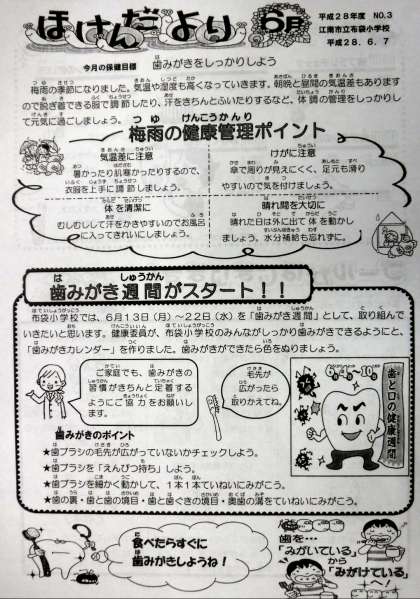 ほけんだより
6月
平成28年度 NO.3
江南市立布袋小学校
平成28.6.7
今月の保健目標 歯みがきをしっかりしよう
梅雨の季節になりました。気温や湿度も高くなっていきます。朝晩と昼間の気温差もあります
ので脱ぎ着できる服で調節したり、汗をきちんとふいたりするなど、体調の管理をしっかりし
て元気に過ごしましょう。
梅雨の健康管理ポイント
気温差に注意
暑かったり肌寒かったりするので、
衣服を上手に調節しましょう。
けがに注意
傘で周りが見えにくく、足元も滑り
やすいので気を付けましょう。
体を清潔に
むしむしして汗をかきやすいのでお風呂
に入ってきれいにしましょう。
晴れ間を大切に
晴れた日は外に出て体を動かし
ましょう。水分補給も忘れずに。
歯みがき週間がスタート！！
布袋小学校では、6月13日(月)～22日(水)を「歯みがき週間」として、取り組んで
いきたいと思います。健康委員が、布袋小学校のみんながしっかり歯みがきができるようにと、
「歯みがきカレンダー」を作りました。歯みがきができたら色をぬりましょう。
ご家庭でも、歯みがきの
習慣がきちんと定着する
ようにご協力をお願いし
ます。
毛先が
広がったら
取りかえてね。
歯と口の健康週間
歯みがきのポイント
★歯ブラシの毛先が広がっていないかチェックしよう。
★歯ブラシを「えんぴつ持ち」しよう。
★歯ブラシを細かく動かして、1本1本ていねいにみがこう。
★歯の裏・歯と歯の境目・歯と歯ぐきの境目・奥歯の溝をていねいにみがこう。
食べたらすぐに
歯みがきしようね！
歯を…
「みがいている」
から
「みがけている」
へ！